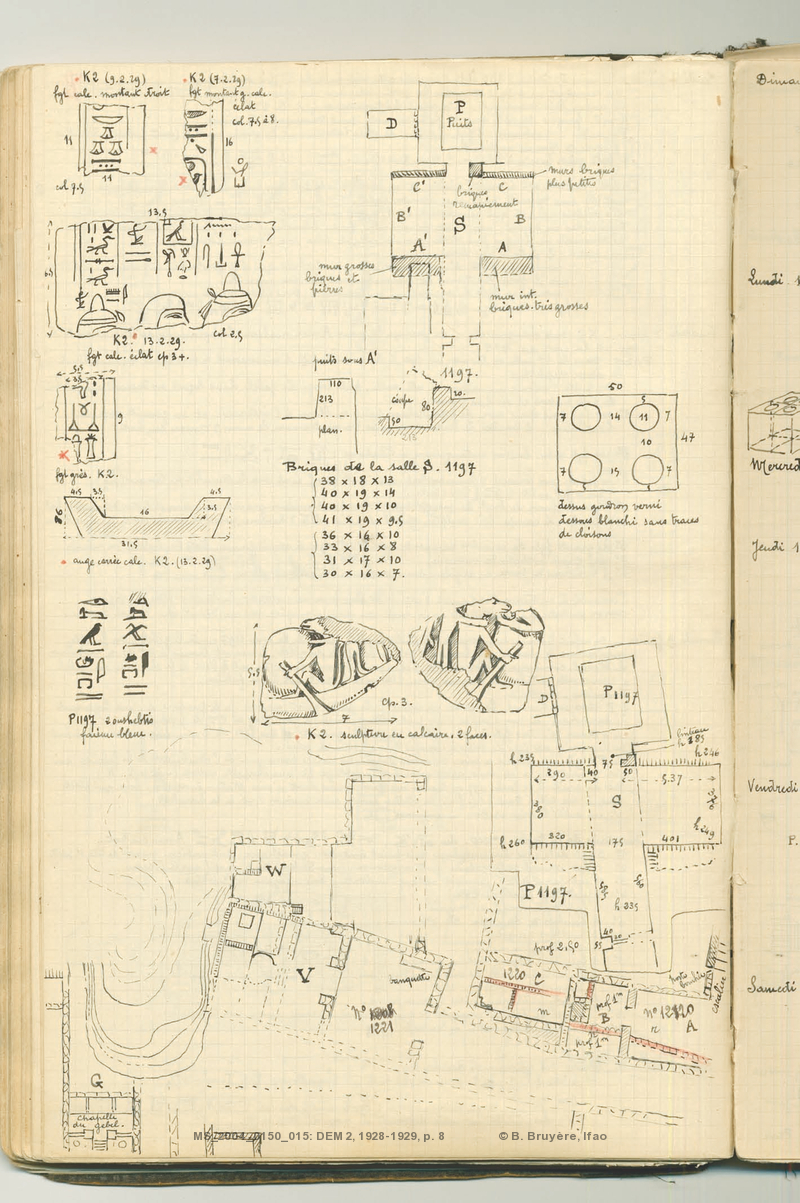 K2 (9.2.29)
fgt calc. montant droit
11
11
col 7.5
K2 (7.2.29)
fgt montant g. calc.
éclat
col. 7.5 à 8.
16
D
P
Puits
murs briques
plus petites
C'
C
briques
B'
S
B
A'
A
mur grosses
briques et
pierres
mur int.
briques très grosses
13,5
K2. 13.2.29.
col 2,5
fgt calc. éclat cp 3+.
puits sous A'
110
213
plan.
1197.
coupe
80
50
20
213
5,5
3,5
9
fgt grès. K2.
Briques de la salle S. 1197
38 x 18 x 13
40 x 19 x 14
40 x 19 x 10
41 x 19 x 9,5
36 x 16 x 10
33 x 16 x 8
31 x 17 x 10
30 x 16 x 7.
50
5
7
14
11
7
10
47
7
15
7
dessus goudron verni
dessous blanchi sans traces
de cloisons
4,5
3,5
16
4.5
3,5
31,5
auge carrée calc. K2. (13.2.29)
P1197 2 oushebtis
faïence bleue.
5,5
7
cp. 3.
K2. sculpture en calcaire, 2 faces.
D
P1197
linteau
h 285
h 235
75
h 246
290
40
50
5.37
S
h 260
320
175
401
h 249
P1197.
h 235
40
55
W
V
banquette
N°
1221
prof 2,50
1220
C
m
prof 1m
B
prof 1m
N° 1220
A
porte
escalier
G
chapelle
du gebel.
DEM 2, 1928-1929, p. 8
© B. Bruyère, Ifao
Lundi
Mercredi
Jeudi 1
Vendredi
P.
Samedi